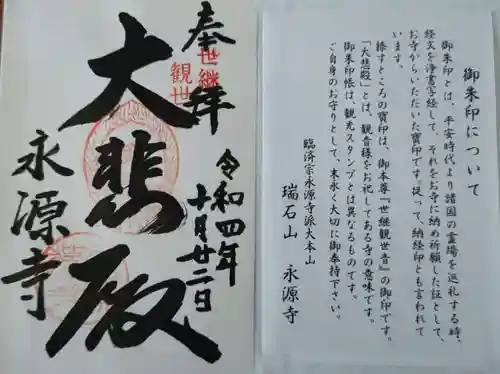 奉拝
世継
観世
大悲殿
令和四年
十月廿二日
永源寺
御朱印について
御朱印とは、平安時代より諸国の霊場を巡礼する時、
経文を浄書写経して、それをお寺に納め祈願した証として、
お寺からいただいた寳印です。従って、納経印とも言われて
います。
捺すところの寳印は、御本尊『世継観世音』の御印です。
「大悲殿」とは、観音様をお祀してある寺の意味です。
御朱印帳は、観光スタンプとは異なるものです。
ご自身のお守りとして、末永く大切に御奉持下さい。
臨済宗永源寺派大本山
瑞石山 永源寺